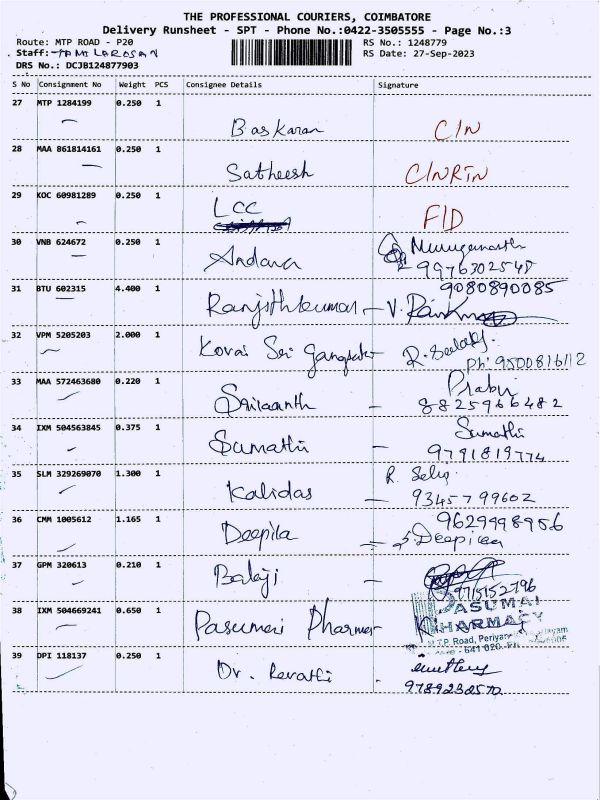 THE PROFESSIONAL COURIERS, COIMBATORE
Delivery Runsheet - SPT - Phone No.:0422-3505555 - Page No.:3
Route: MTP ROAD - P20 RS No.: 1248779
Staff: TAMILAROSAN RS Date: 27-Sep-2023
DRS No.: DCJB124877903
S No Consignment No Weight PCS Consignee Details Signature
27 MTP 1284199 0.250 1
Baskaran C/N
28 MAA 861814161 0.250 1
Satheesh C/NRTN
29 KOC 60981289 0.250 1
LCC F/D
30 VNB 624672 0.250 1
Andava Muruganath
31 BTU 602315 4.400 1 9080890085
Ranjithkumar - V.
32 VPM 5205203 2.000 1
Kovai Sri
Ph: 9500816112
33 MAA 572463680 0.220 1 Prabu
- 8825966482
34 IXM 504563845 0.375 1 Sumathi
Sumathi - 9791819774
35 SLM 329269070 1.300 1 R. Selvi
Kalidas - 9345799602
36 CMM 1005612 1.165 1 9629998956
Deepika - S. Deepica
37 GPM 320613 0.210 1
Balaji - 9715152796
38 IXM 504669241 0.650 1 PASUMAI
Pasumai Pharmacy PHARMACY
M.T.P. Road,
39 DPI 118137 0.250 1
Dr. Revathi